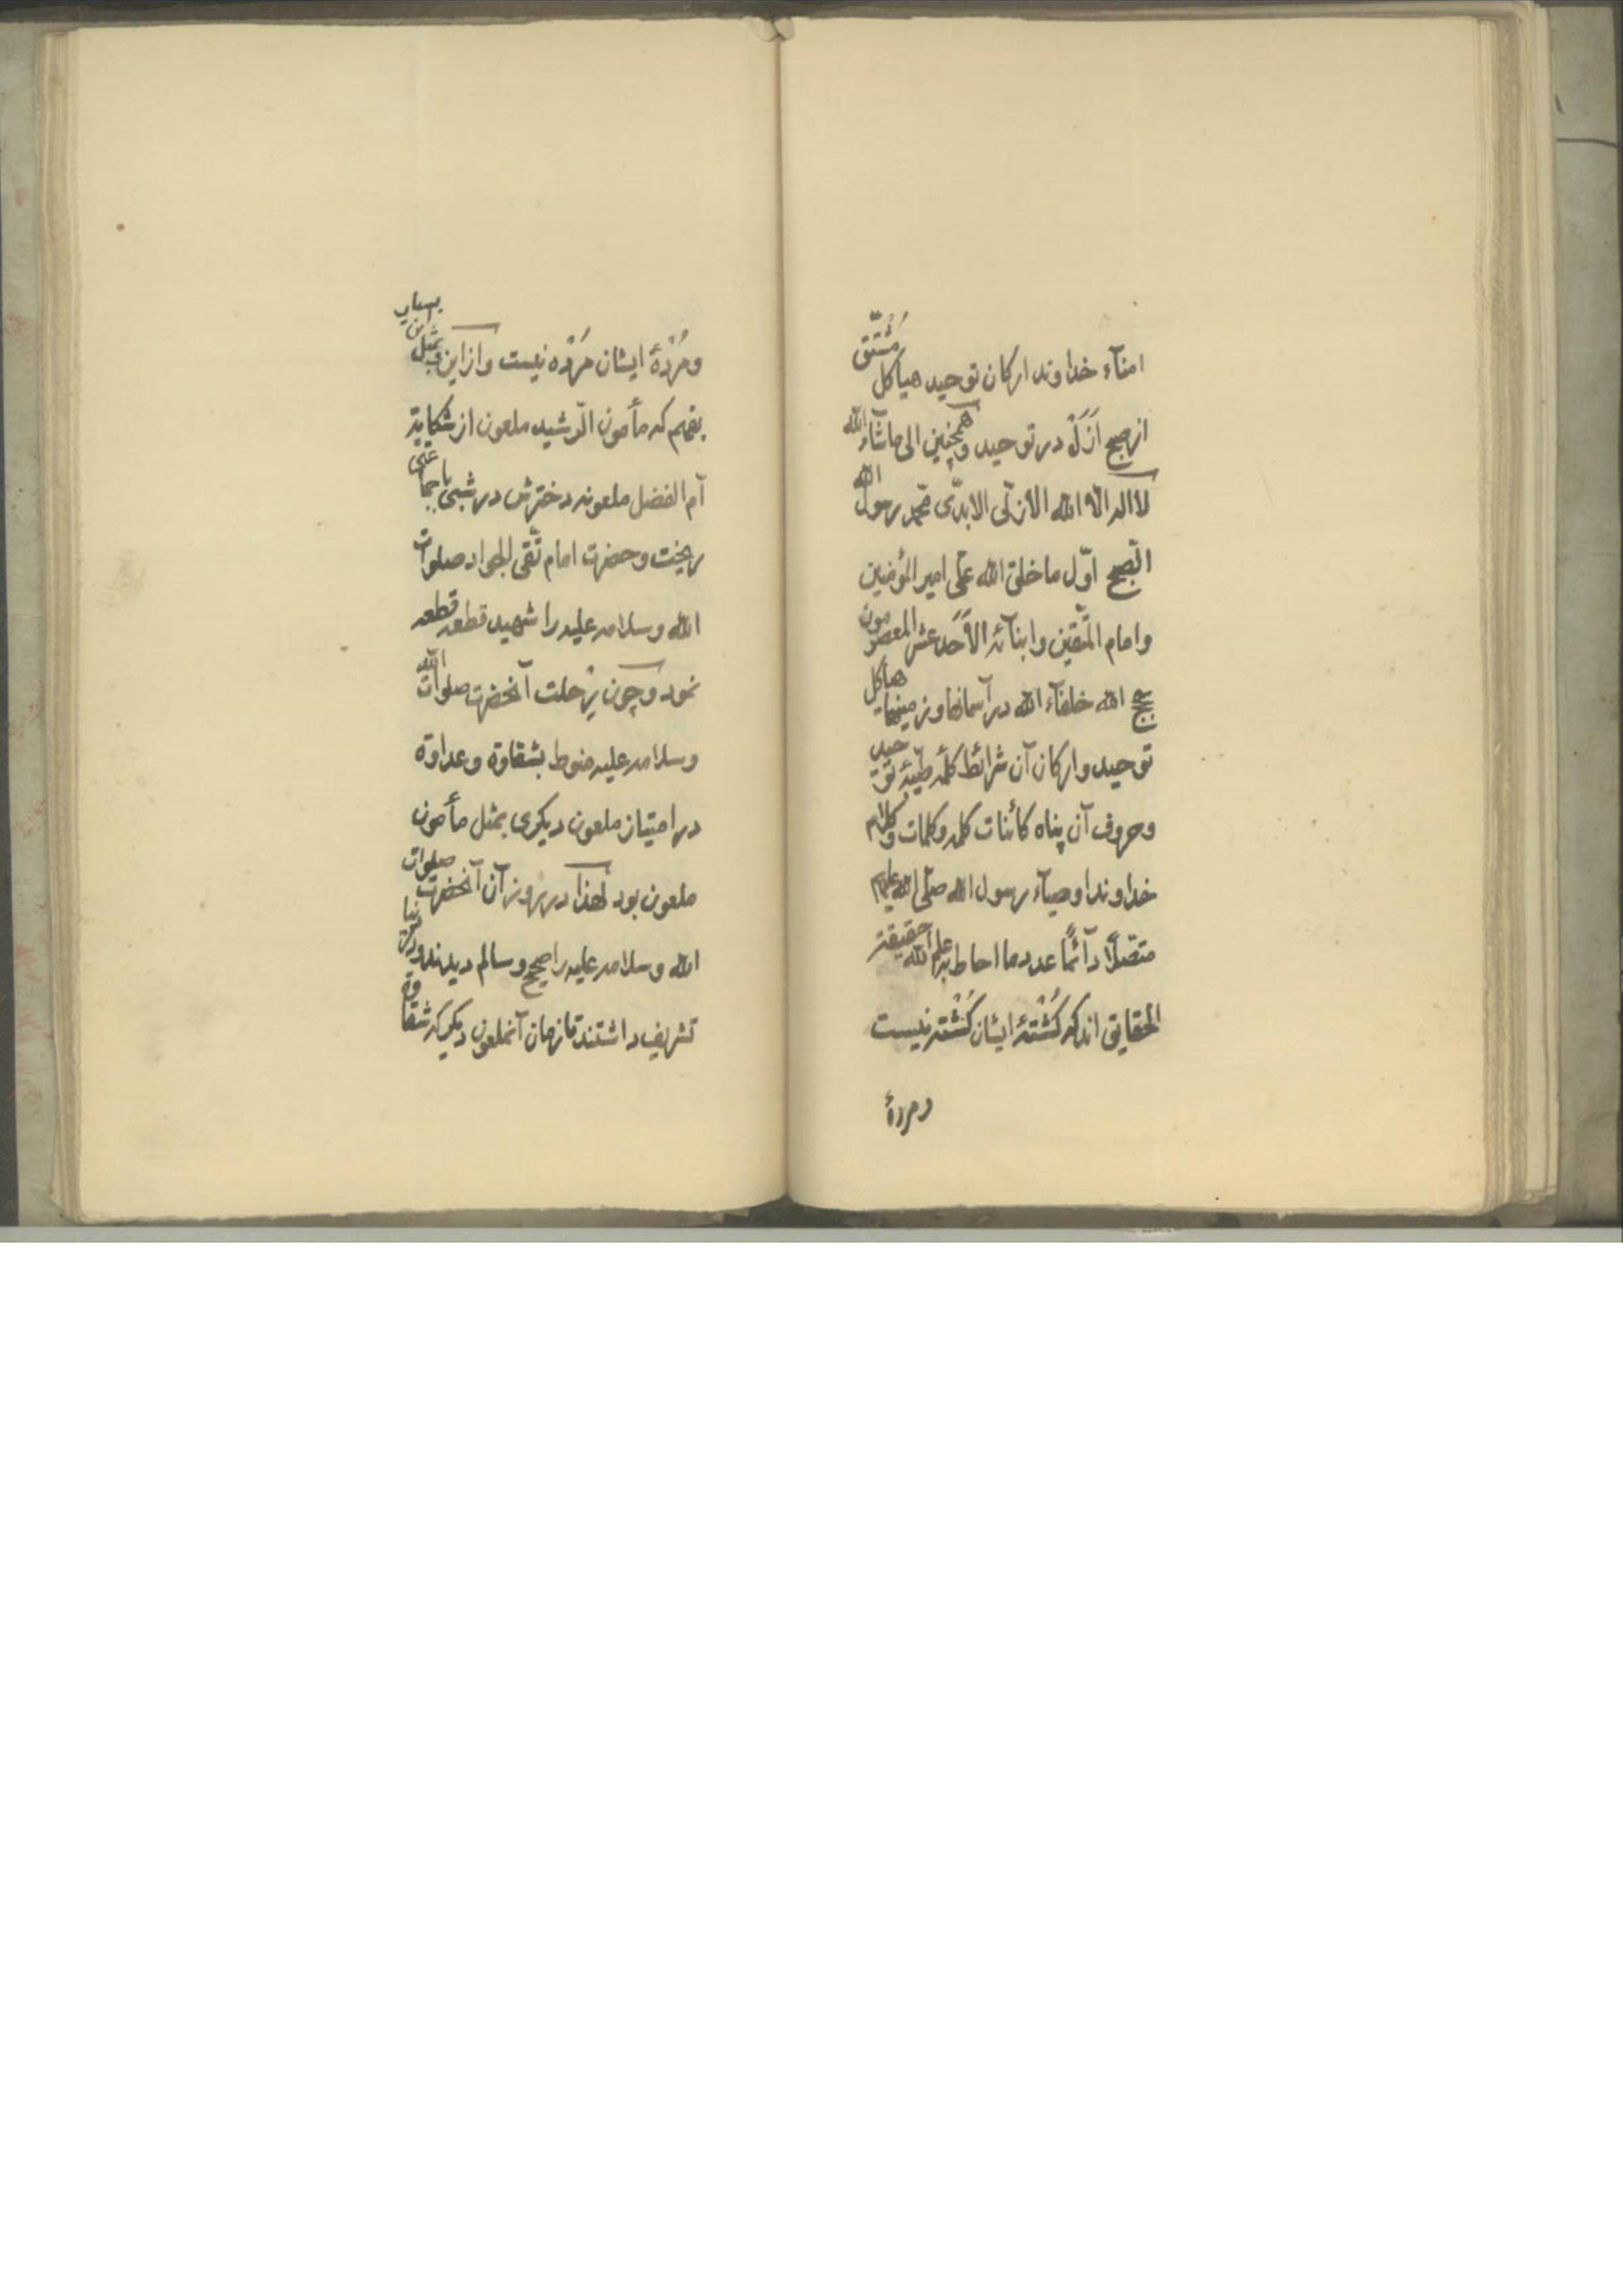 امنآء خداوند ارکان توحید هیاکل مُشتّق
از صبح اَزَلْ در توحید و همچنین الی ماشآء الله
لا اله الّا الله الازلّی الابدّی محّمد رسول الله
الصّبح اوّل ما خلق الله علّی امیر المؤمنین
و امام المتّقین و ابنآئه الأحَد عشر المعصومون
حجج الله خلفآء الله در آسمانها و زمینها هیاکل
توحید و ارکان آن شرائط کلمهٔ طیّبهٔ توحید
و حروف آن پناه کائنات کلمه و کلمات و کلام
خداوند اوصیآء رسول الله صلّی الله علیهم
متصّلاً دآئماً عدد ما احاط به علم الله حقیقة
الحقایق اند که کُشْتهٔ ایشان کُشْته نیست
و مردهٔ
و مُرْدهٔ ایشان مُرْده نیست و از این بسیاب بمثل این
بفهم که مأمون الّرشید ملعون از شکایة
اّم الفضل ملعونه دخترش در شبی با جماعتی
ریخت و حضرت امام تّقی الجواد صلوات
الله و سلامه علیه را شهید قطعه قطعه
نمود و چون رحلت آنحضرت صلوات الله
و سلامه علیه منوط بشقاوة و عداوة
در امتیاز ملعون دیکری بمثل مأمون
ملعون بود لهذا در روز آن آنحضرت صلوات
الله و سلامه علیه را صحیح و سالم دیدند و در دنیا
تشریف داشتند تا زمان آنملعون دیکر که شقاوة